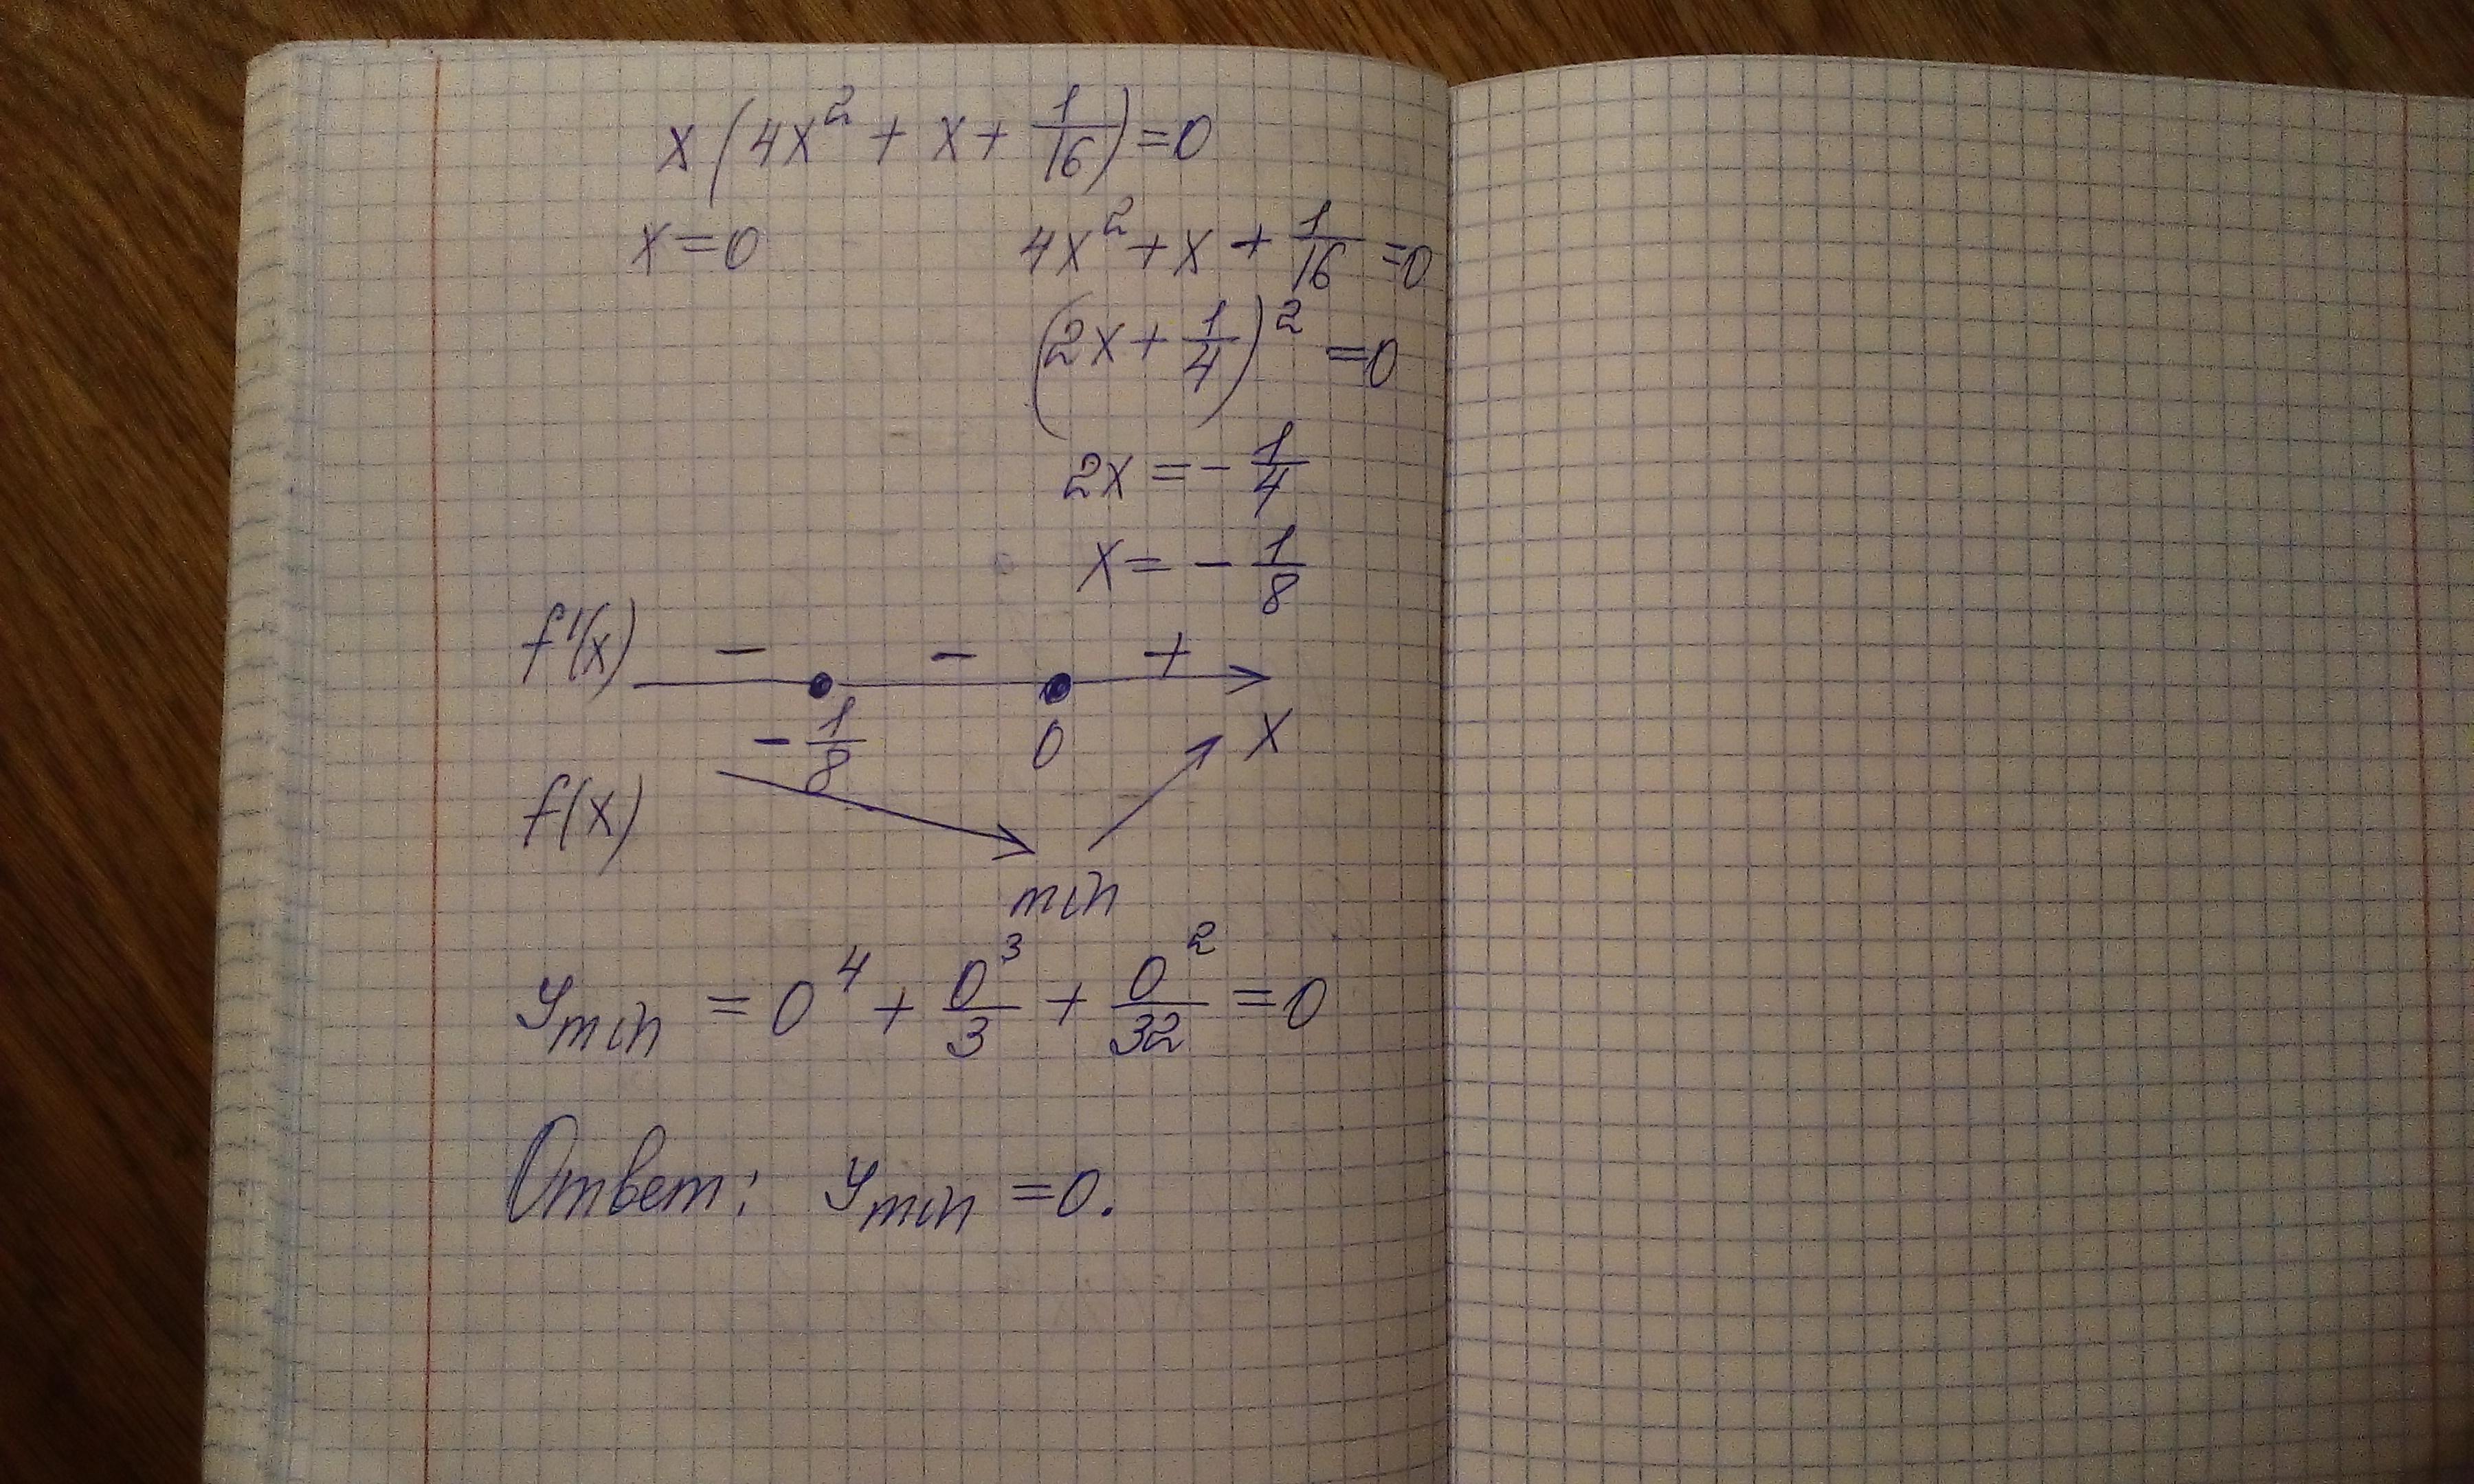 x(4x² + x + 1/16) = 0
x = 0    4x² + x + 1/16 = 0
(2x + 1/4)² = 0
2x = - 1/4
x = - 1/8
f'(x)  -  -  +
- 1/8  0  x
f(x)
min
y_min = 0⁴ + 0³/3 + 0²/32 = 0
Ответ: y_min = 0.